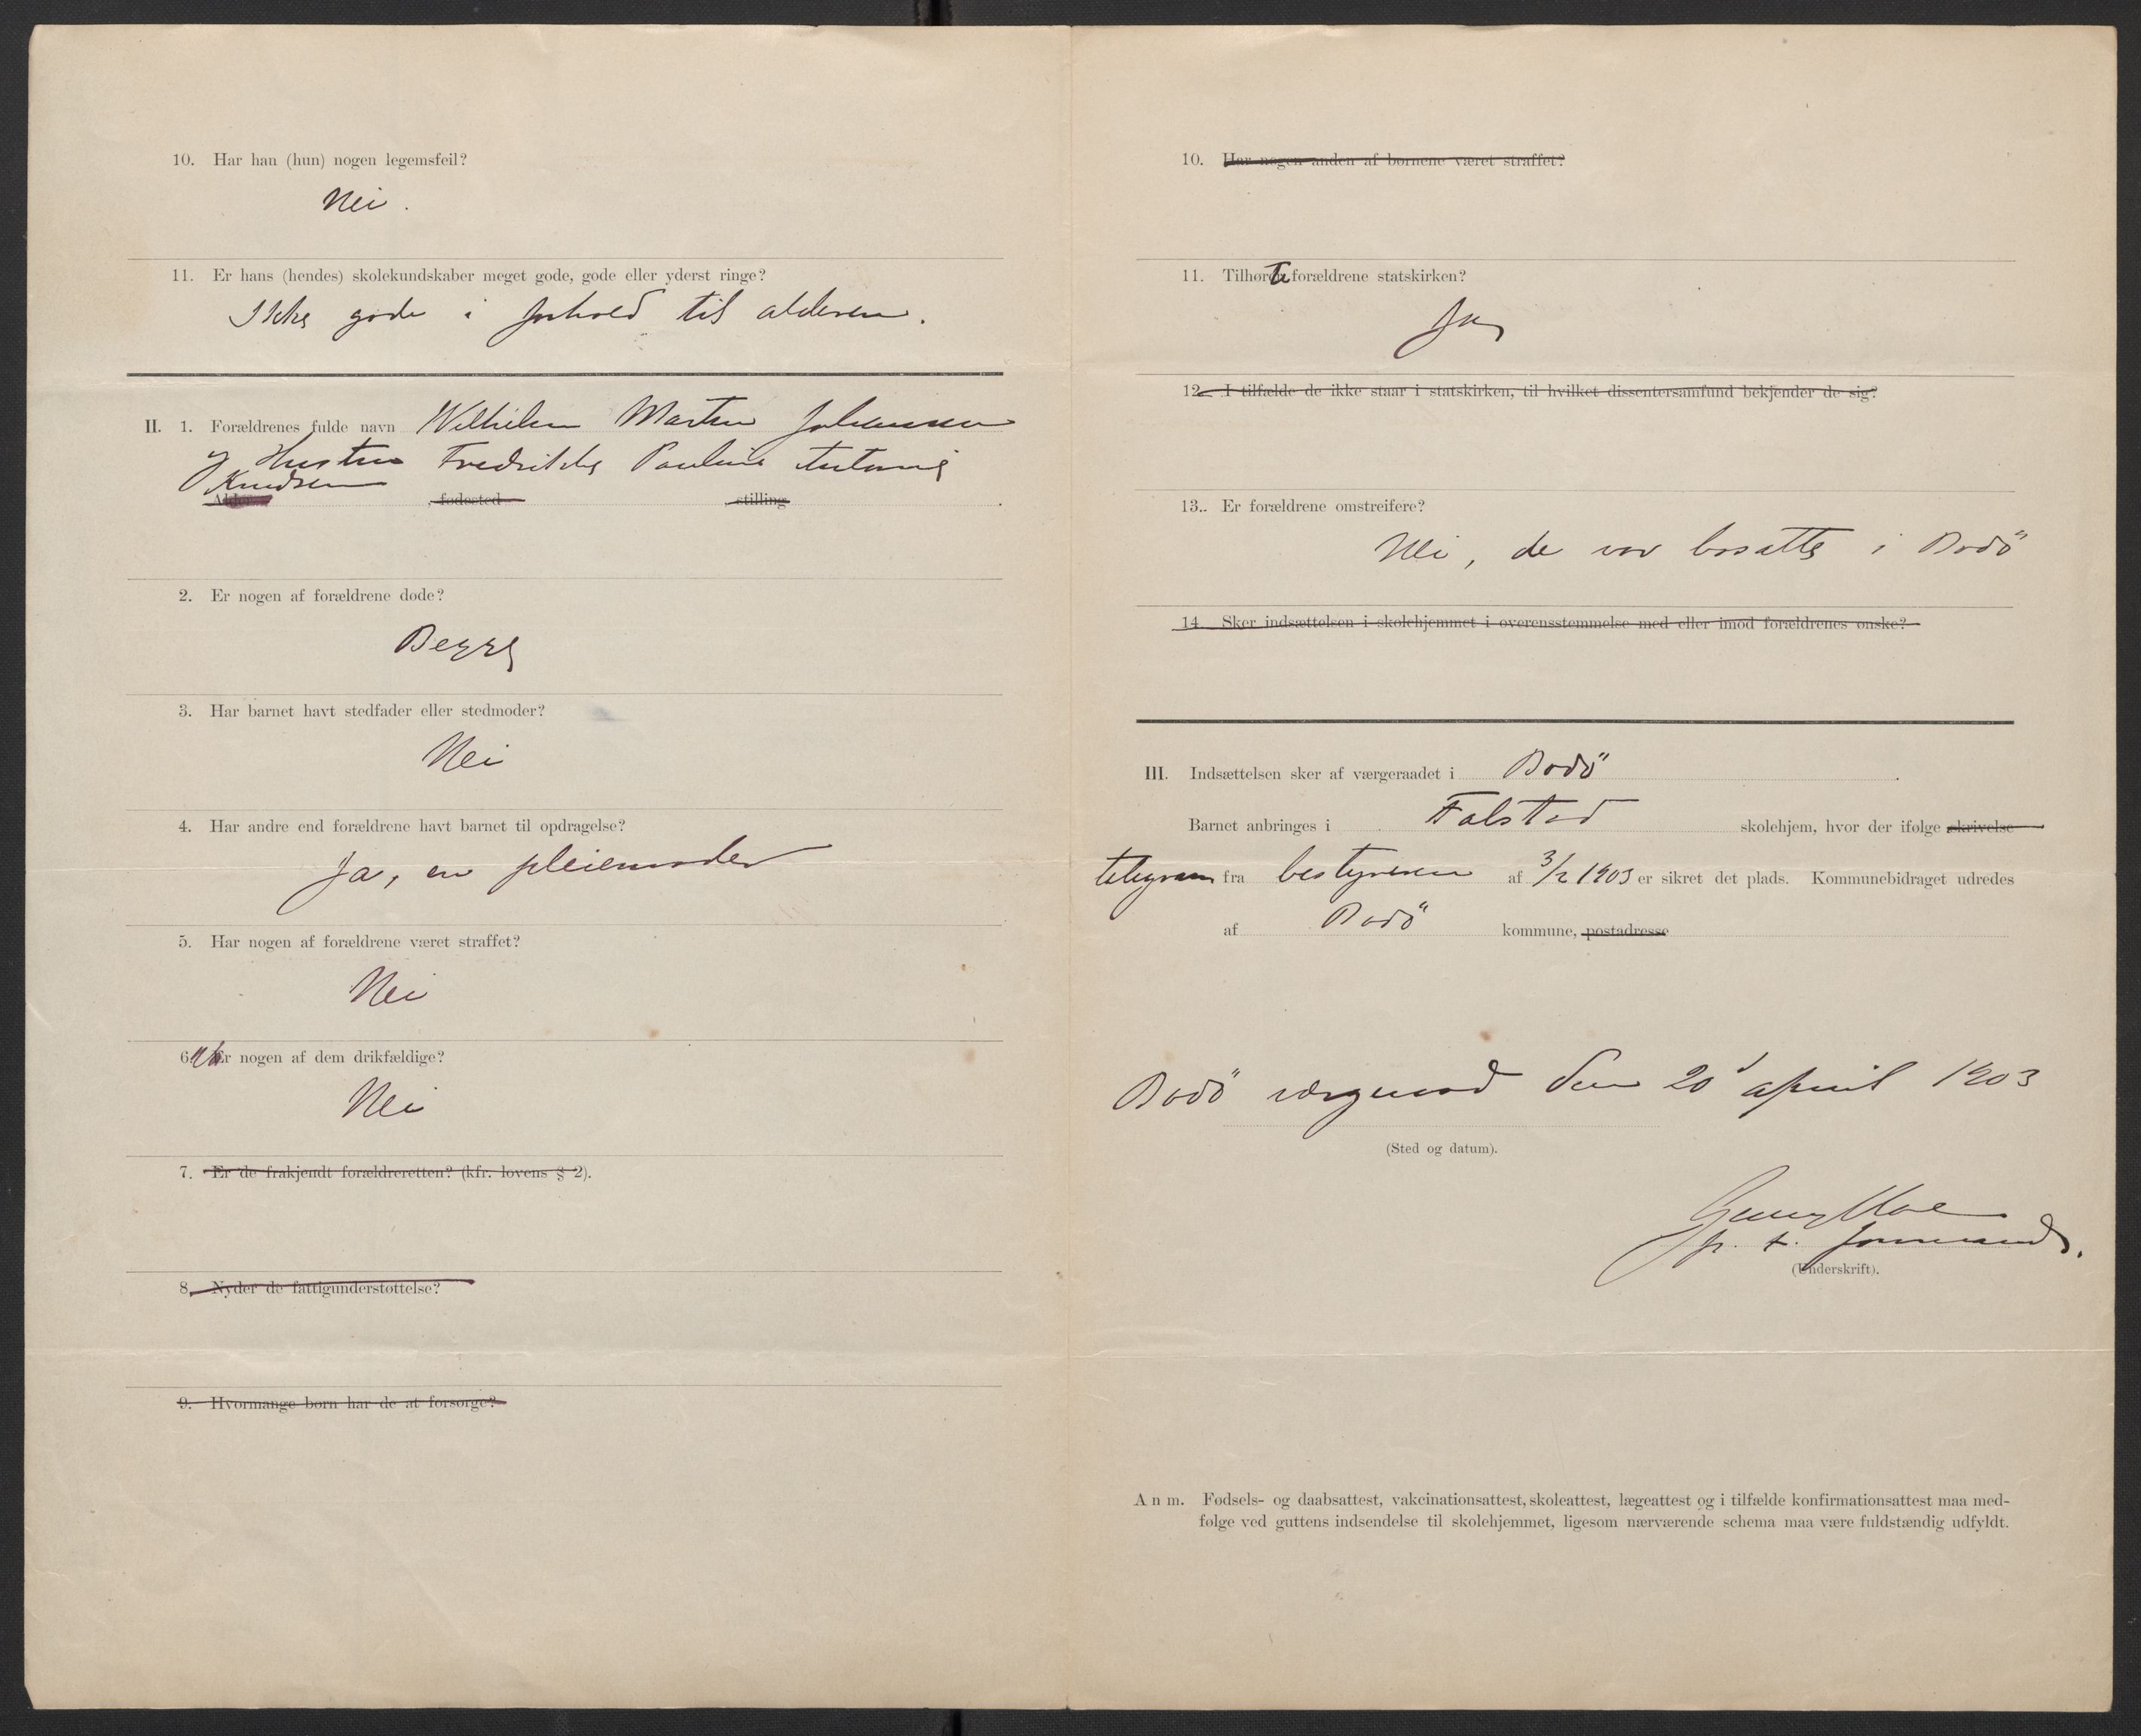 10. Har han (hun) nogen legemsfeil?
Nei.
11. Er hans (hendes) skolekundskaber meget gode, gode eller yderst ringe?
Ikke gode i forhold til alderen.
II. 1. Forældrenes fulde navn Wilhelm Martin Johansen
og Hustru Fredrikke Pauline Antonie
Knudsen
Alder , fødested , stilling .
2. Er nogen af forældrene døde?
Begge
3. Har barnet havt stedfader eller stedmoder?
Nei
4. Har andre end forældrene havt barnet til opdragelse?
Ja, en pleiemoder
5. Har nogen af forældrene været straffet?
Nei
6. Er nogen af dem drikfældige?
Nei
7. Er de frakjendt forældreretten? (kfr. lovens § 2).
8. Nyder de fattigunderstøttelse?
9. Hvormange børn har de at forsørge?
10. Har nogen anden af børnene været straffet?
11. Tilhørte forældrene statskirken?
Ja
12. I tilfælde de ikke staar i statskirken, til hvilket dissentersamfund bekjender de sig?
13.. Er forældrene omstreifere?
Nei, de var bosatte i Bodö
14. Sker indsættelsen i skolehjemmet i overensstemmelse med eller imod forældrenes ønske?
III. Indsættelsen sker af værgeraadet i Bodö .
Barnet anbringes i Falstad skolehjem, hvor der ifølge skrivelse
telegram fra bestyreren af 3/2 1903 er sikret det plads. Kommunebidraget udredes
af Bodö kommune, postadresse
Bodö værgeraad den 20' april 1903
(Sted og datum).
p. t. formand.
(Underskrift).
Anm. Fødsels- og daabsattest, vakcinationsattest, skoleattest, lægeattest og i tilfælde konfirmationsattest maa med-
følge ved guttens indsendelse til skolehjemmet, ligesom nærværende schema maa være fuldstændig udfyldt.